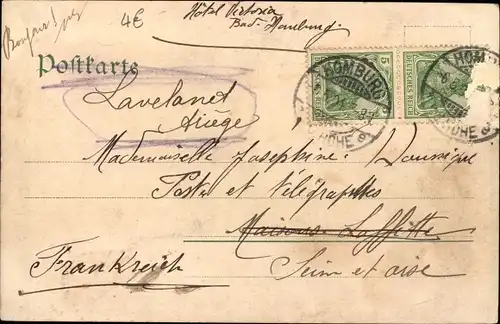 4€
Hôtel Victoria
Bad Homburg
Bonjour!
Postkarte
Lavelanet
Ariège
Mademoiselle Josephine
Poste et Télégraphes
Maisons-Laffitte
Seine et oise
Frankreich
DEUTSCHES REICH
5
HOMBURG
HÖHE
HOM
HÖHE